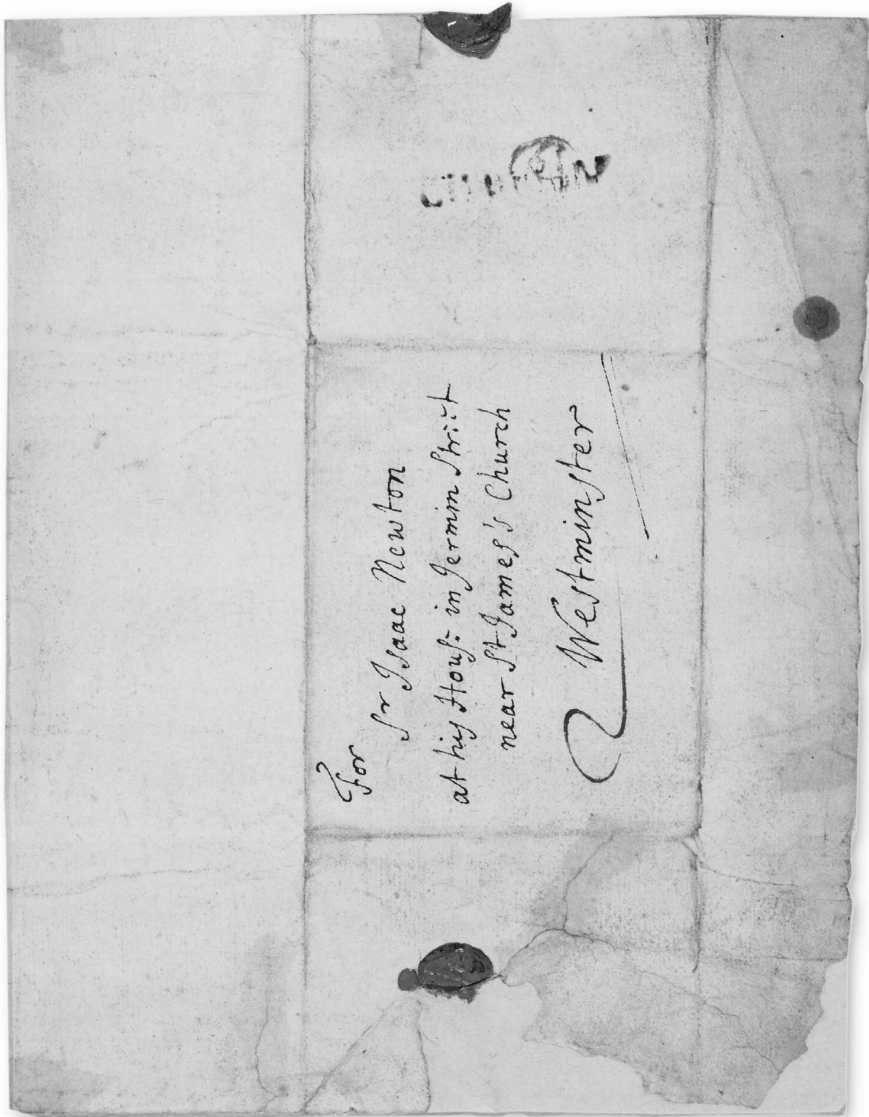 For
Sr Isaac Newton
at his House in Jermin Street
near St James's Church
Westminster